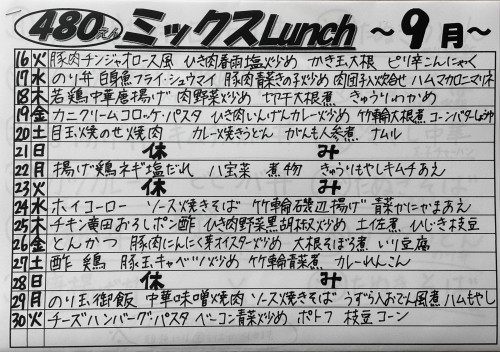 480えん ミックスLunch ～9月～
16 火 豚肉チンジャオロース風 ひき肉春雨塩炒め かき玉大根 ピリ辛こんにゃく
17 水 のり弁 白身魚フライ・シュウマイ 豚肉青菜きのこ炒め 肉団子入炊合せ ハムマカロニマリネ
18 木 若鶏中華唐揚げ 肉野菜炒め 切干大根煮 きゅうりわかめ
19 金 カニクリームコロッケ・パスタ ひき肉いんげんカレー炒め 竹輪大根煮 コーンバターしょうゆ
20 土 目玉焼のせ焼肉 カレー焼きうどん がんも人参煮 ナムル
21 日 休み
22 月 揚げ鶏ネギ塩だれ 八宝菜 煮物 きゅうりもやしキムチあえ
23 火 休み
24 水 ホイコーロー ソース焼きそば 竹輪磯辺揚げ 青菜かにかまあえ
25 木 チキン黄田おろしポン酢 ひき肉野菜黒胡椒炒め 土佐煮 ひじき枝豆
26 金 とんかつ 豚肉にんにく芽オイスター炒め 大根そぼろ煮 いり豆腐
27 土 酢鶏 豚玉キャベツ炒め 竹輪青菜煮 カレーれんこん
28 日 休み
29 月 のり玉御飯 中華味噌焼肉 ソース焼きそば うずら入おでん風煮 ハムもやし
30 火 チーズハンバーグ・パスタ ベーコン青菜炒め ポトフ 枝豆コーン